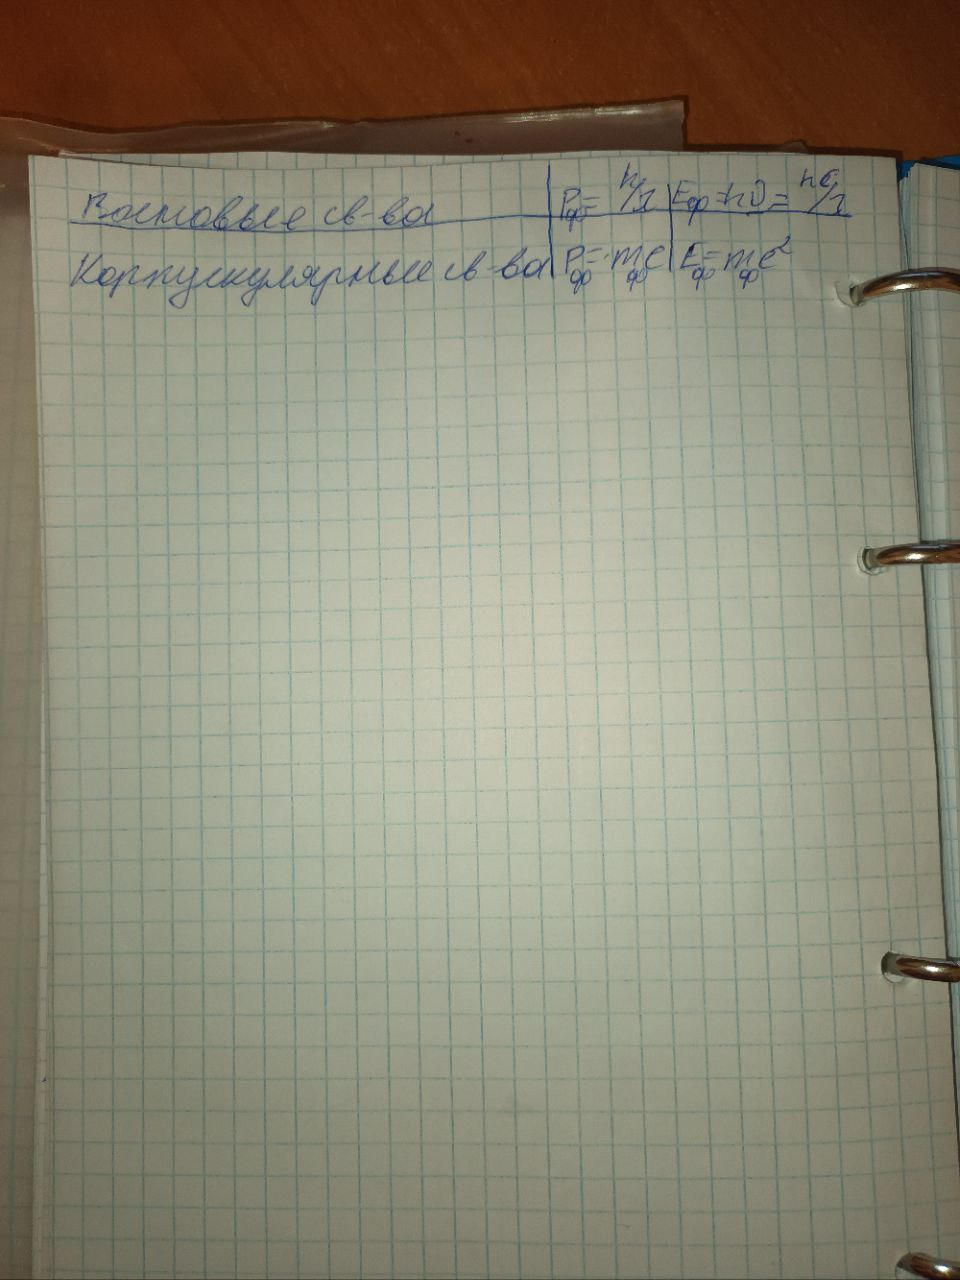 Волновые св-ва | Pф = h/λ | Eф = hν = hc/λ
Корпускулярные св-ва | Pф = mфc | Eф = mфc²